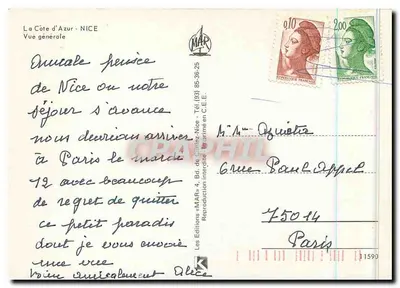 La Côte d'Azur - NICE
Vue générale
MAR
0,10
2,00
Amicale pensée
de Nice ou notre
séjour s'avance
nous devrions arriver
à Paris le mardi
12 avec beaucoup
de regret de quitter
ce petit paradis
dont je vous envoie
une vue
bien amicalement Alice
Les Editions «MAR» 4, Bd. de Nice - Tél (93) 85-36-25
Reproduction interdite Imprimé en C.E.E.
CPHPHIL
6 rue Paul Appel
75014
Paris
11590
K